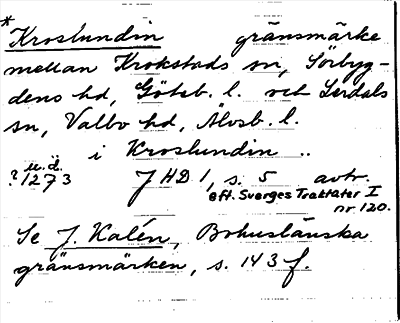 *Kroslundin gränsmärke
mellan Krokstads sn, Sörbyg-
dens hd, Göteb. l. och Lerdals
sn, Valbo hd, Älvsb. l.
i Kroslundin ..
u.d.
? 1273 JHD 1, s. 5 avtr.
eft. Sverges Traktater I
nr 120.
Se J. Kalén, Bohuslänska
gränsmärken, s. 143 f.